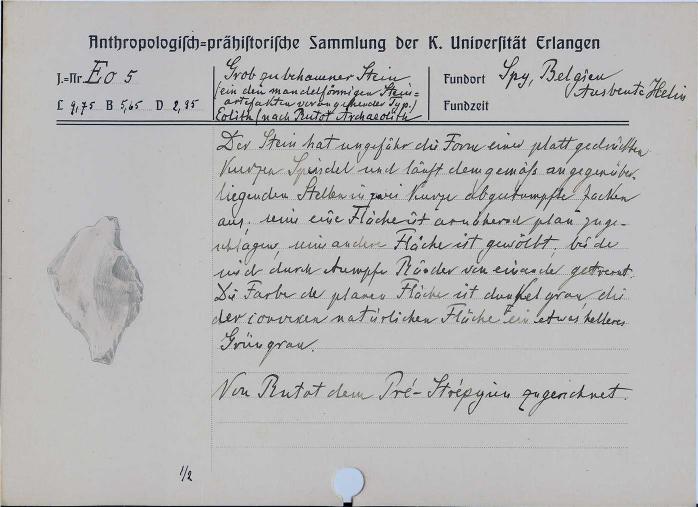 Anthropologisch=prähistorische Sammlung der K. Universität Erlangen
J.=Nr. Eo 5
L 9,75 B 5,65 D 2,95
Grob zubehauener Stein
(ein den mandelförmigen Stein=
artefakten vorangehender Typ.)
Eolith (nach Rutot Archaeolith
Fundort Spy, Belgien
Ausbeute Helin
Fundzeit
Der Stein hat ungefähr die Form einer platt gedrückten
kurzen Spindel und läuft demgemäß an gegenüber-
liegenden Stellen in zwei kurze abgestumpfte Zacken
aus; seine eine Fläche ist annähernd plan zuge-
schlagen, seine andere Fläche ist gewölbt, beide
sind durch stumpfe Ränder von einander getrennt.
Die Farbe der planen Fläche ist dunkel grau, die
der convexen natürlichen Fläche ein etwas helleres
Grüngrau.
Von Rutot dem Pré-Strépyien zugerichnet.
1/2